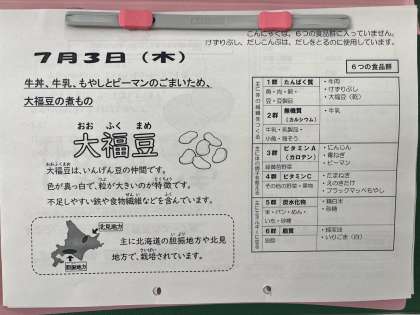 こんにゃくは、6つの食品群に入っていません。
けずりぶし、だしこんぶは、だしをとるのに使用しています。
7月3日（木）
牛丼、牛乳、もやしとピーマンのごまいため、
大福豆の煮もの
おお ふく まめ
大福豆
おおふくまめ
大福豆は、いんげん豆の仲間です。
色が真っ白で、粒が大きいのが特徴です。
不足しやすい鉄や食物繊維などを含んでいます。
北見地方
胆振地方
主に北海道の胆振地方や北見
地方で、栽培されています。
6つの食品群
1群 たんぱく質
魚・肉・卵・
豆・豆製品
・牛肉
・けずりぶし
・大福豆（乾）
2群 無機質
（カルシウム）
牛乳・乳製品・
小魚・海そう
・牛乳
3群 ビタミンA
（カロテン）
緑黄色野菜
・にんじん
・青ねぎ
・ピーマン
4群 ビタミンC
その他の野菜・果物
・たまねぎ
・えのきたけ
・ブラックマッペもやし
5群 炭水化物
米・パン・めん・
いも・砂糖
・精白米
・砂糖
6群 脂質
油脂
・綿実油
・いりごま（白）